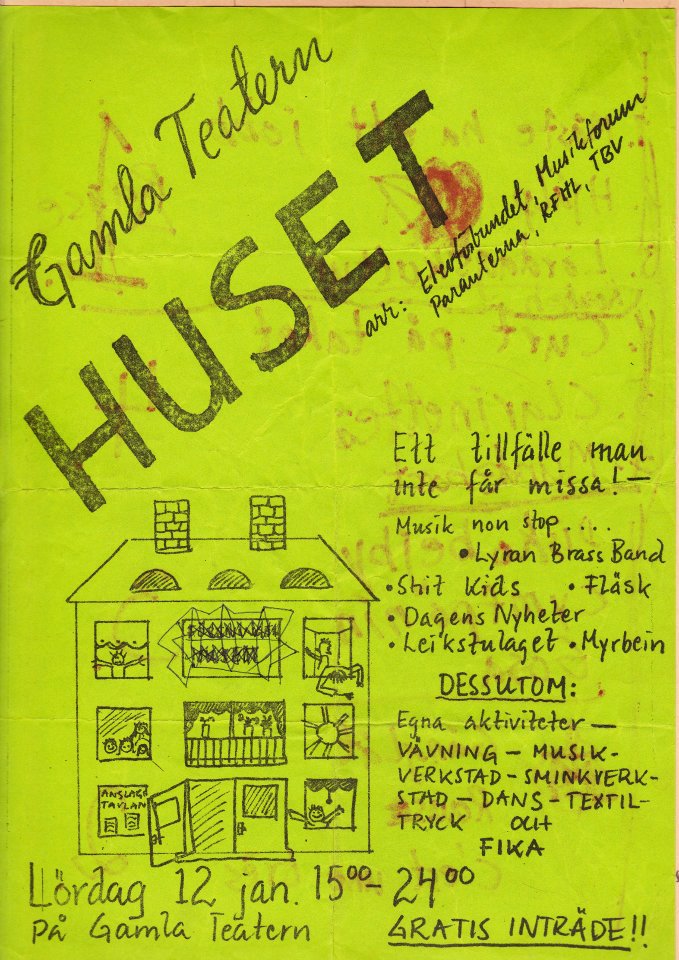 Gamla Teatern
HUSET
arr: Elevförbundet, Musikforum
Paranterna, RFHL, TBV
Ett tillfälle man
inte får missa! —
Musik non stop . . . .
• Lyran Brass Band
• Shit Kids • Fläsk
• Dagens Nyheter
• Leikstulaget • Myrbein
DESSUTOM:
Egna aktiviteter —
VÄVNING – MUSIK-
VERKSTAD – SMINKVERK-
STAD – DANS – TEXTIL-
TRYCK och
FIKA
ANSLAGS
TAVLAN
Lördag 12 jan. 15⁰⁰– 24⁰⁰
på Gamla Teatern
GRATIS INTRÄDE!!